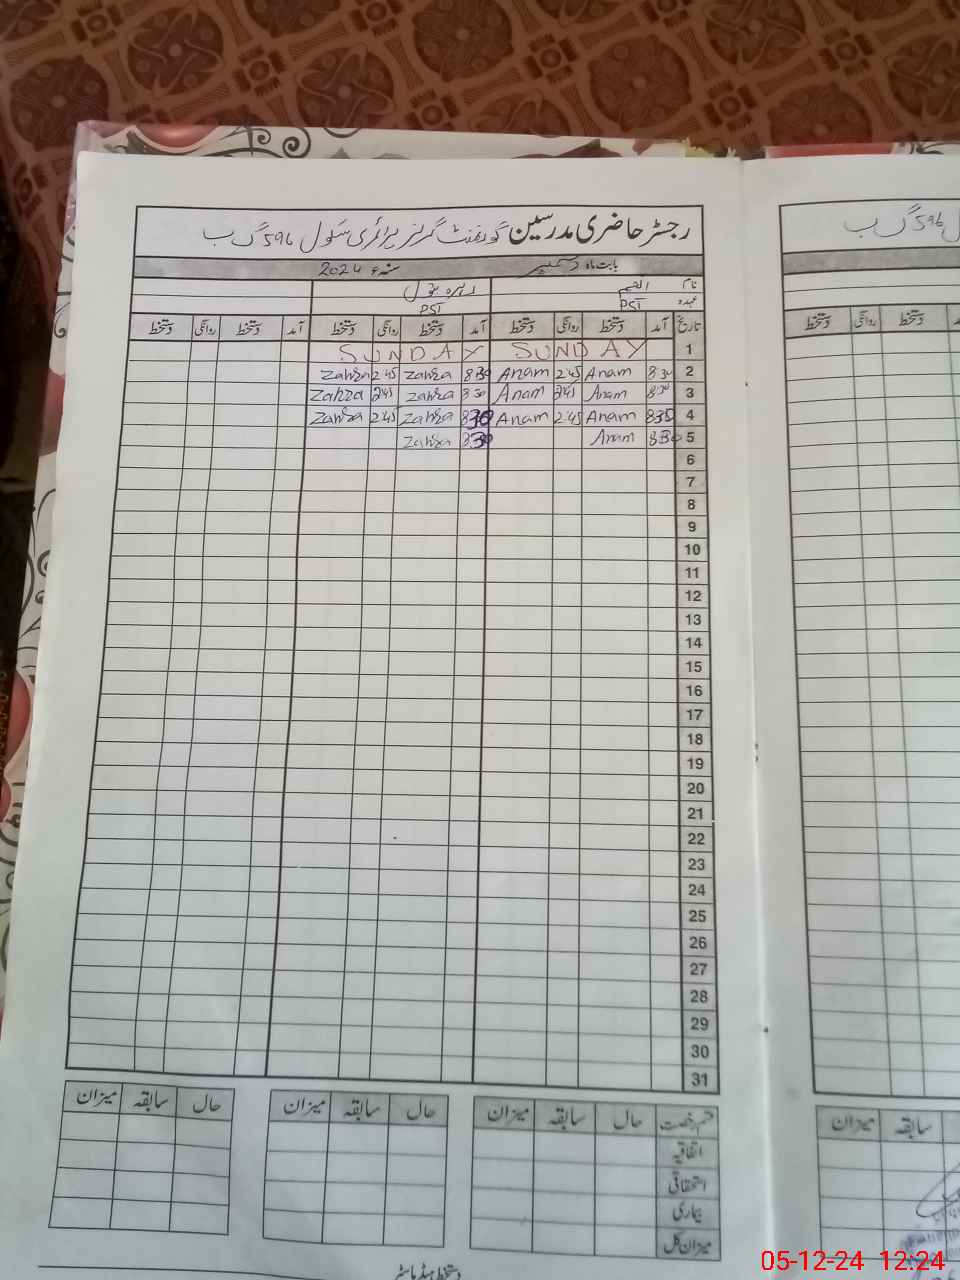 رجسٹر حاضری مدرسین گورنمنٹ گرلز پرائمری سکول 596 گ ب
بابت ماہ دسمبر سنہ ء 2024
نام
عہدہ PST PST
تاریخ آمد دستخط روانگی دستخط آمد دستخط روانگی دستخط آمد دستخط روانگی دستخط
1 SUNDAY SUNDAY
2 830 Anam 245 Anam 830 Zahra 245 Zahra
3 830 Anam 245 Anam 830 Zahra 245 Zahra
4 830 Anam 245 Anam 830 Zahra 245 Zahra
5 830 Anam 830 Zahra
6
7
8
9
10
11
12
13
14
15
16
17
18
19
20
21
22
23
24
25
26
27
28
29
30
31
قسم رخصت حال سابقہ میزان حال سابقہ میزان حال سابقہ میزان
اتفاقیہ
استحقاقی
بیماری
میزان کل
دستخط ہیڈ ماسٹر
596 گ ب
دستخط روانگی دستخط
سابقہ میزان
05-12-24 12:24